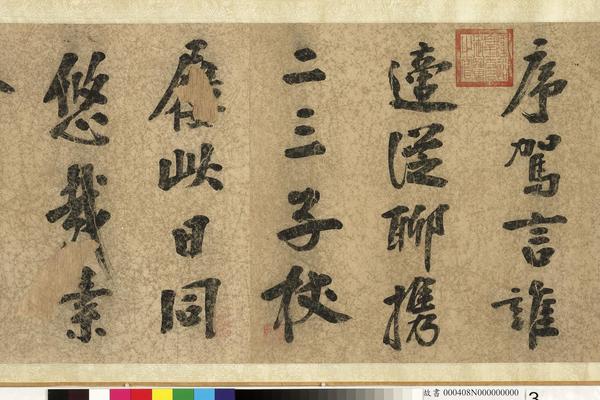 序駕言誰
適從聊攜
二三子杖
此日同
悠哉素
故書 000408N000000000
3